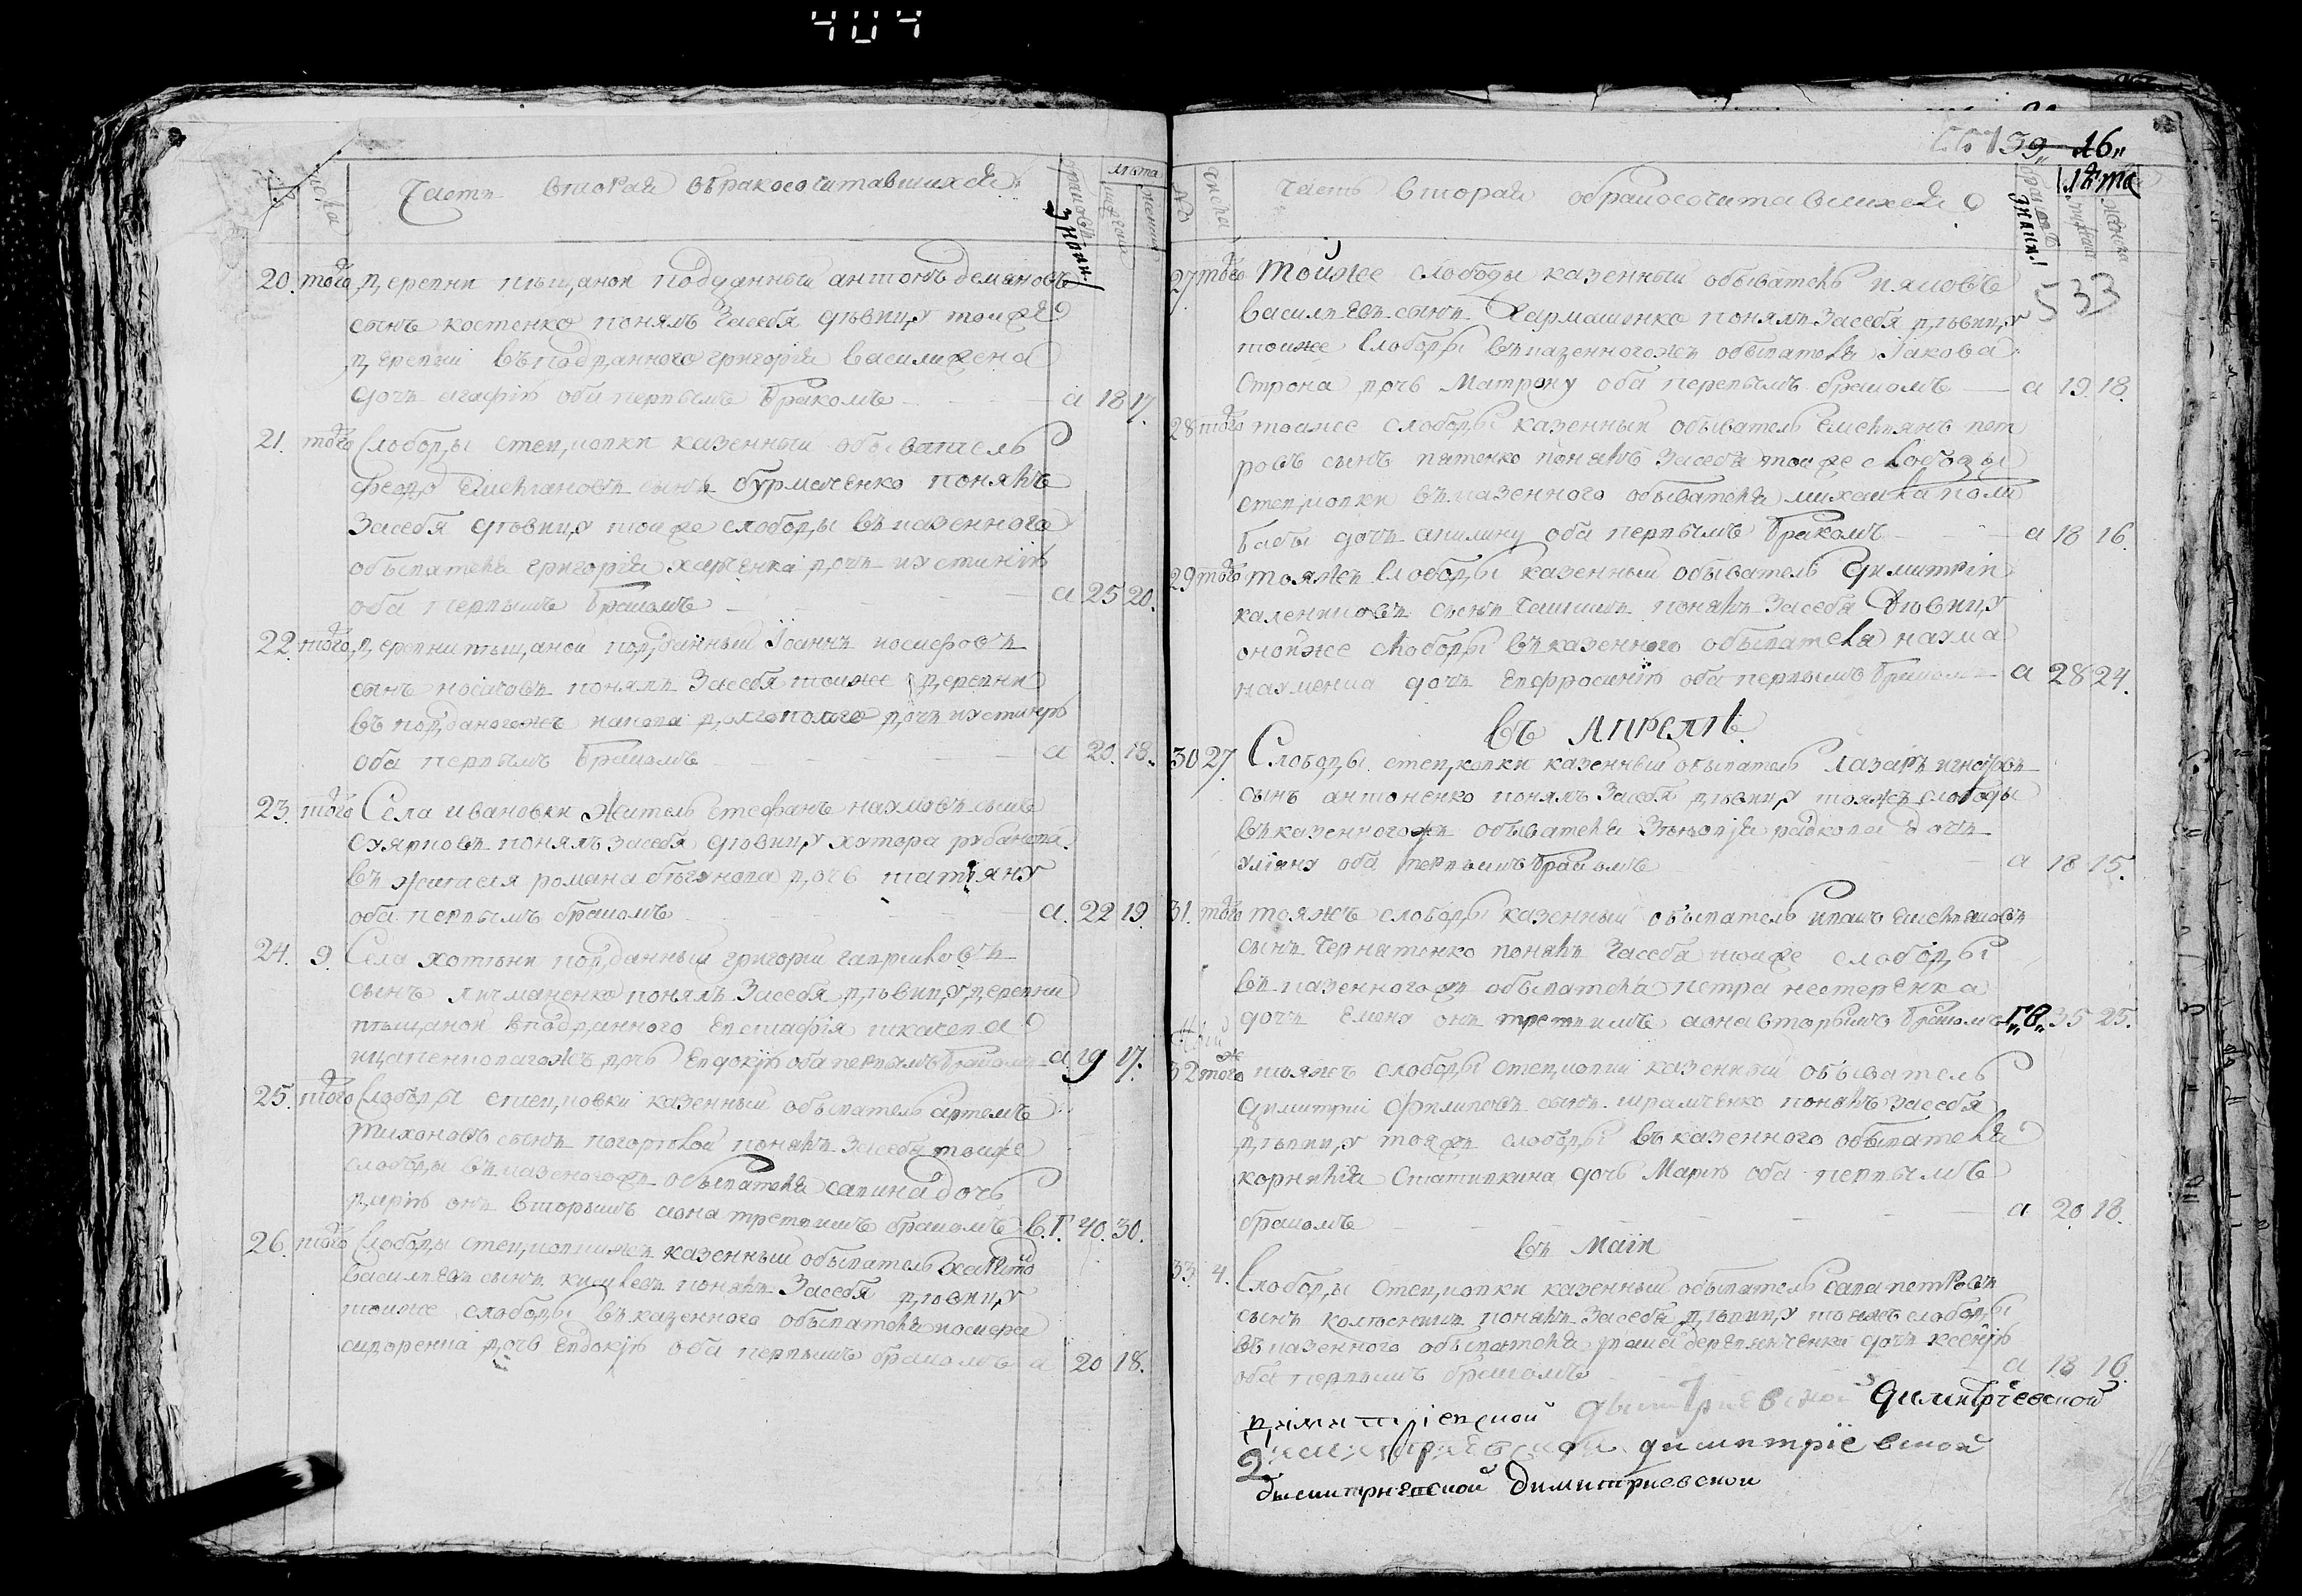 404
№ числа
Часть вторая обракосочитавшихся
браковъ знаки лѣта мужеска женска
20. тогож деревни пещаной подданный антонъ демяновъ
сынъ костенко понялъ засебя девицу тояже
деревни въ подданного григорія василисена
дочь агафію оба первымъ бракомъ а 18 17.
21. тогож слободы степановки казенный обыватель
федор емельяновъ сынъ бурмаченко понялъ
засебя девицу тояже слободы въ казенного
обывателя григорія харченка дочь иустинію
оба первымъ бракомъ а 25 20.
22. тогож деревни пещаной подданный Іоаннъ иосифовъ
сынъ носачовъ понялъ засебя тояже деревни
въ подданогожъ дочь иустину
оба первымъ бракомъ а 20. 18.
23. тогож Села ивановки житель стефанъ наумовъ сынъ
понялъ засебя девицу хутора рубанова
въ жителя романа дочь татіяну
оба первымъ бракомъ а. 22 19.
24. 9. Села хотѣни подданный григорій гавриловъ
сынъ личманенко понялъ засебя девицу деревни
пещаной въ подданного евстафія
дочь Евдокію оба первымъ бракомъ а. 19 17.
25. тогож слободы степановки казенный обыватель артемъ
тихоновъ сынъ погорелой понялъ засебя тояже
слободы въ казеногожъ обывателя савина дочь
дарію онъ вторымъ аона третимъ бракомъ в.г. 40. 30.
26. тогож слободы казенный обыватель харитон
василіевъ сынъ понялъ засебя девицу
тояже слободы въ казенного обывателя иосифа
сидоренка дочь Евдокію оба первымъ бракомъ а 20 18.
139 16
№ числа
часть вторая обракосочитавшихся
браковъ знаки лѣта мужеска женска
533
27 тогож Тойже слободы казенный обыватель яковъ
василіевъ сынъ Хармашенко понялъ засебя девицу
тояже слободы въ казенногожъ обывателя Іакова
Строна дочь Матрону оба первымъ бракомъ а 19. 18.
28 тогож тояже слободы казенный обыватель емельянъ пет
ровъ сынъ пятенко понялъ засебя тояже слободы
степановки въ казенного обывателя михаила поли
бабы дочь акилину оба первымъ бракомъ а 18 16.
29 тогож тояжъ слободы казенный обыватель Димитрій
калениковъ сынъ понялъ засебя девицу
онойже слободы въ казенного обывателя наума
науменка дочь Евфросинію оба первымъ бракомъ а 28 24.
въ Апрелѣ
30 27. Слободы степановки казенный обыватель Лазарь
сынъ антоненко понялъ засебя девицу тояжъ слободы
въ казенногожъ обывателя радкова дочь
уліяну оба первымъ бракомъ а 18 15.
31. тогож тояжъ слободы казенный обыватель иванъ емельяновъ
сынъ чернатенко понялъ засебя тояже слободы
въ казенногожъ обывателя петра нестеренка
дочь елену онъ третимъ аона вторымъ бракомъ г.в. 35 25.
32 тогож тояжъ слободы степановки казенный обыватель
Димитрій филиповъ сынъ шрамченко понялъ засебя
девицу тояжъ слободы въ казенного обывателя
корнилія дочь Марію оба первымъ
бракомъ а 20. 18.
въ Маіи
33 4. Слободы степановки казенный обыватель сава петровъ
сынъ колесникъ понялъ засебя девицу тояжъ слободы
въ казенного обывателя дочь ксенію
оба первымъ бракомъ а 18 16.
димитріевской Димитріевской Димитріевской
Димитріевской димитріевской
Димитриевской Димитриевской